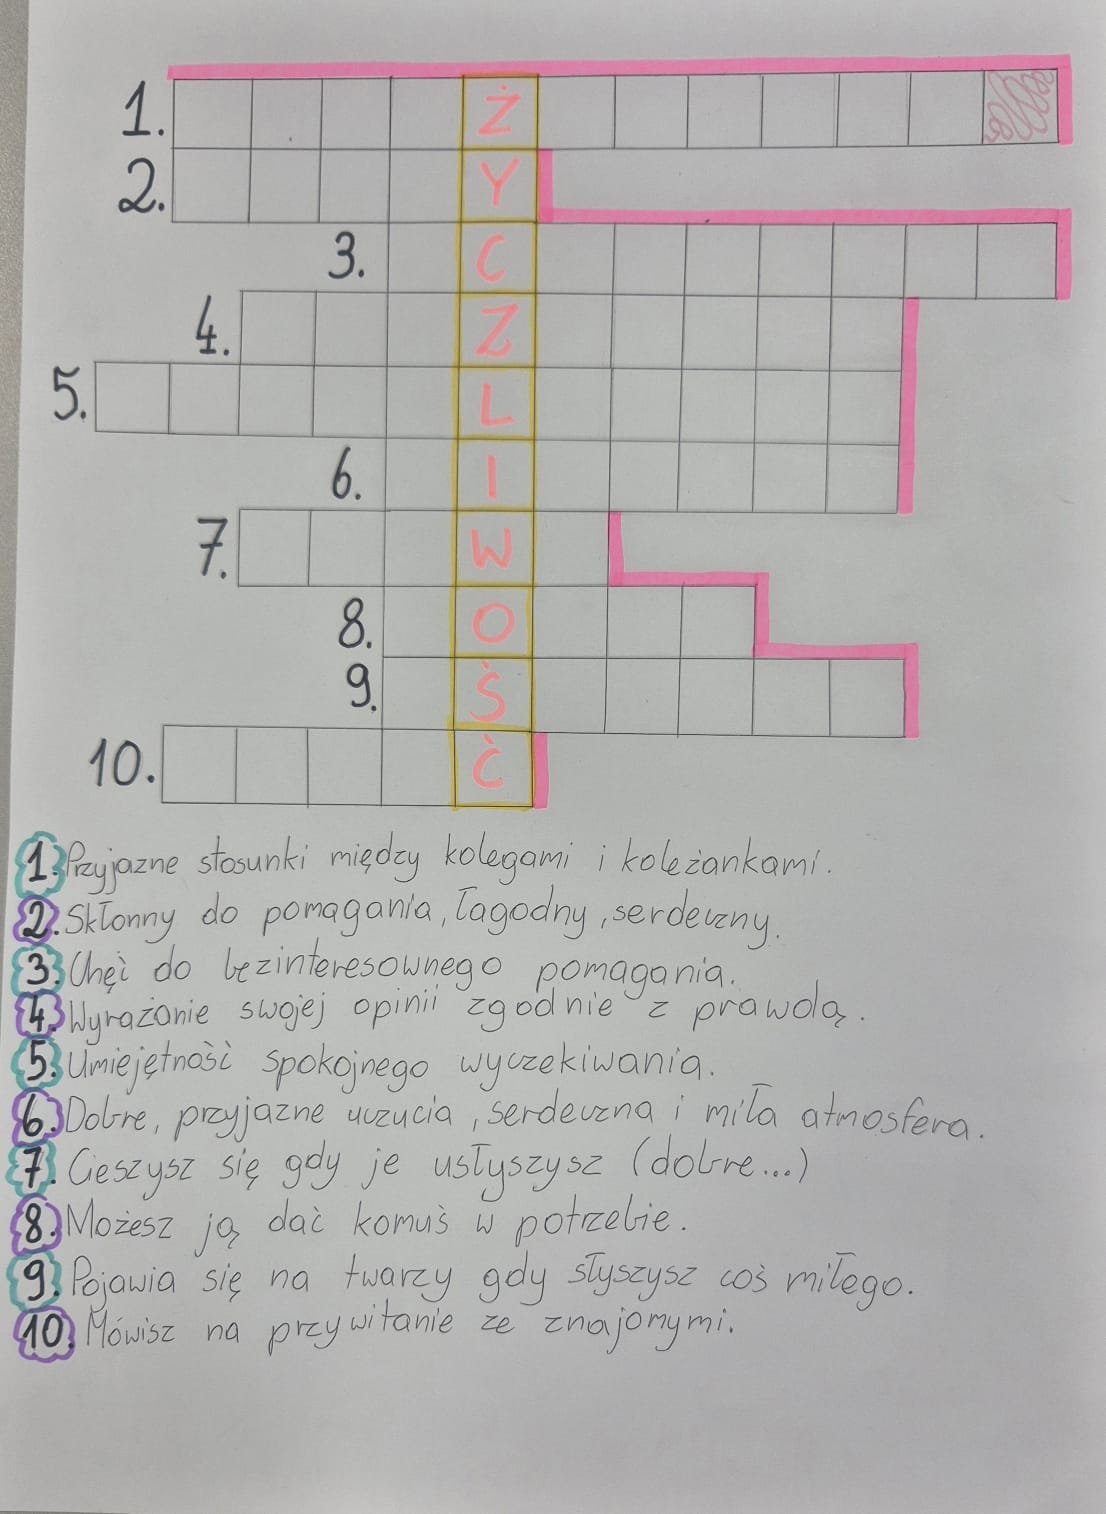 1. Ż
2. Y
3. C
4. Z
5. L
6. I
7. W
8. O
9. Ś
10. Ć
1. Przyjazne stosunki między kolegami i koleżankami.
2. Skłonny do pomagania, łagodny, serdeczny.
3. Chęć do bezinteresownego pomagania.
4. Wyrażanie swojej opinii zgodnie z prawdą.
5. Umiejętność spokojnego wyczekiwania.
6. Dobre, przyjazne uczucia, serdeczna i miła atmosfera.
7. Cieszysz się gdy je usłyszysz (dobre...)
8. Możesz ją dać komuś w potrzebie.
9. Pojawia się na twarzy gdy słyszysz coś miłego.
10. Mówisz na przywitanie ze znajomymi.